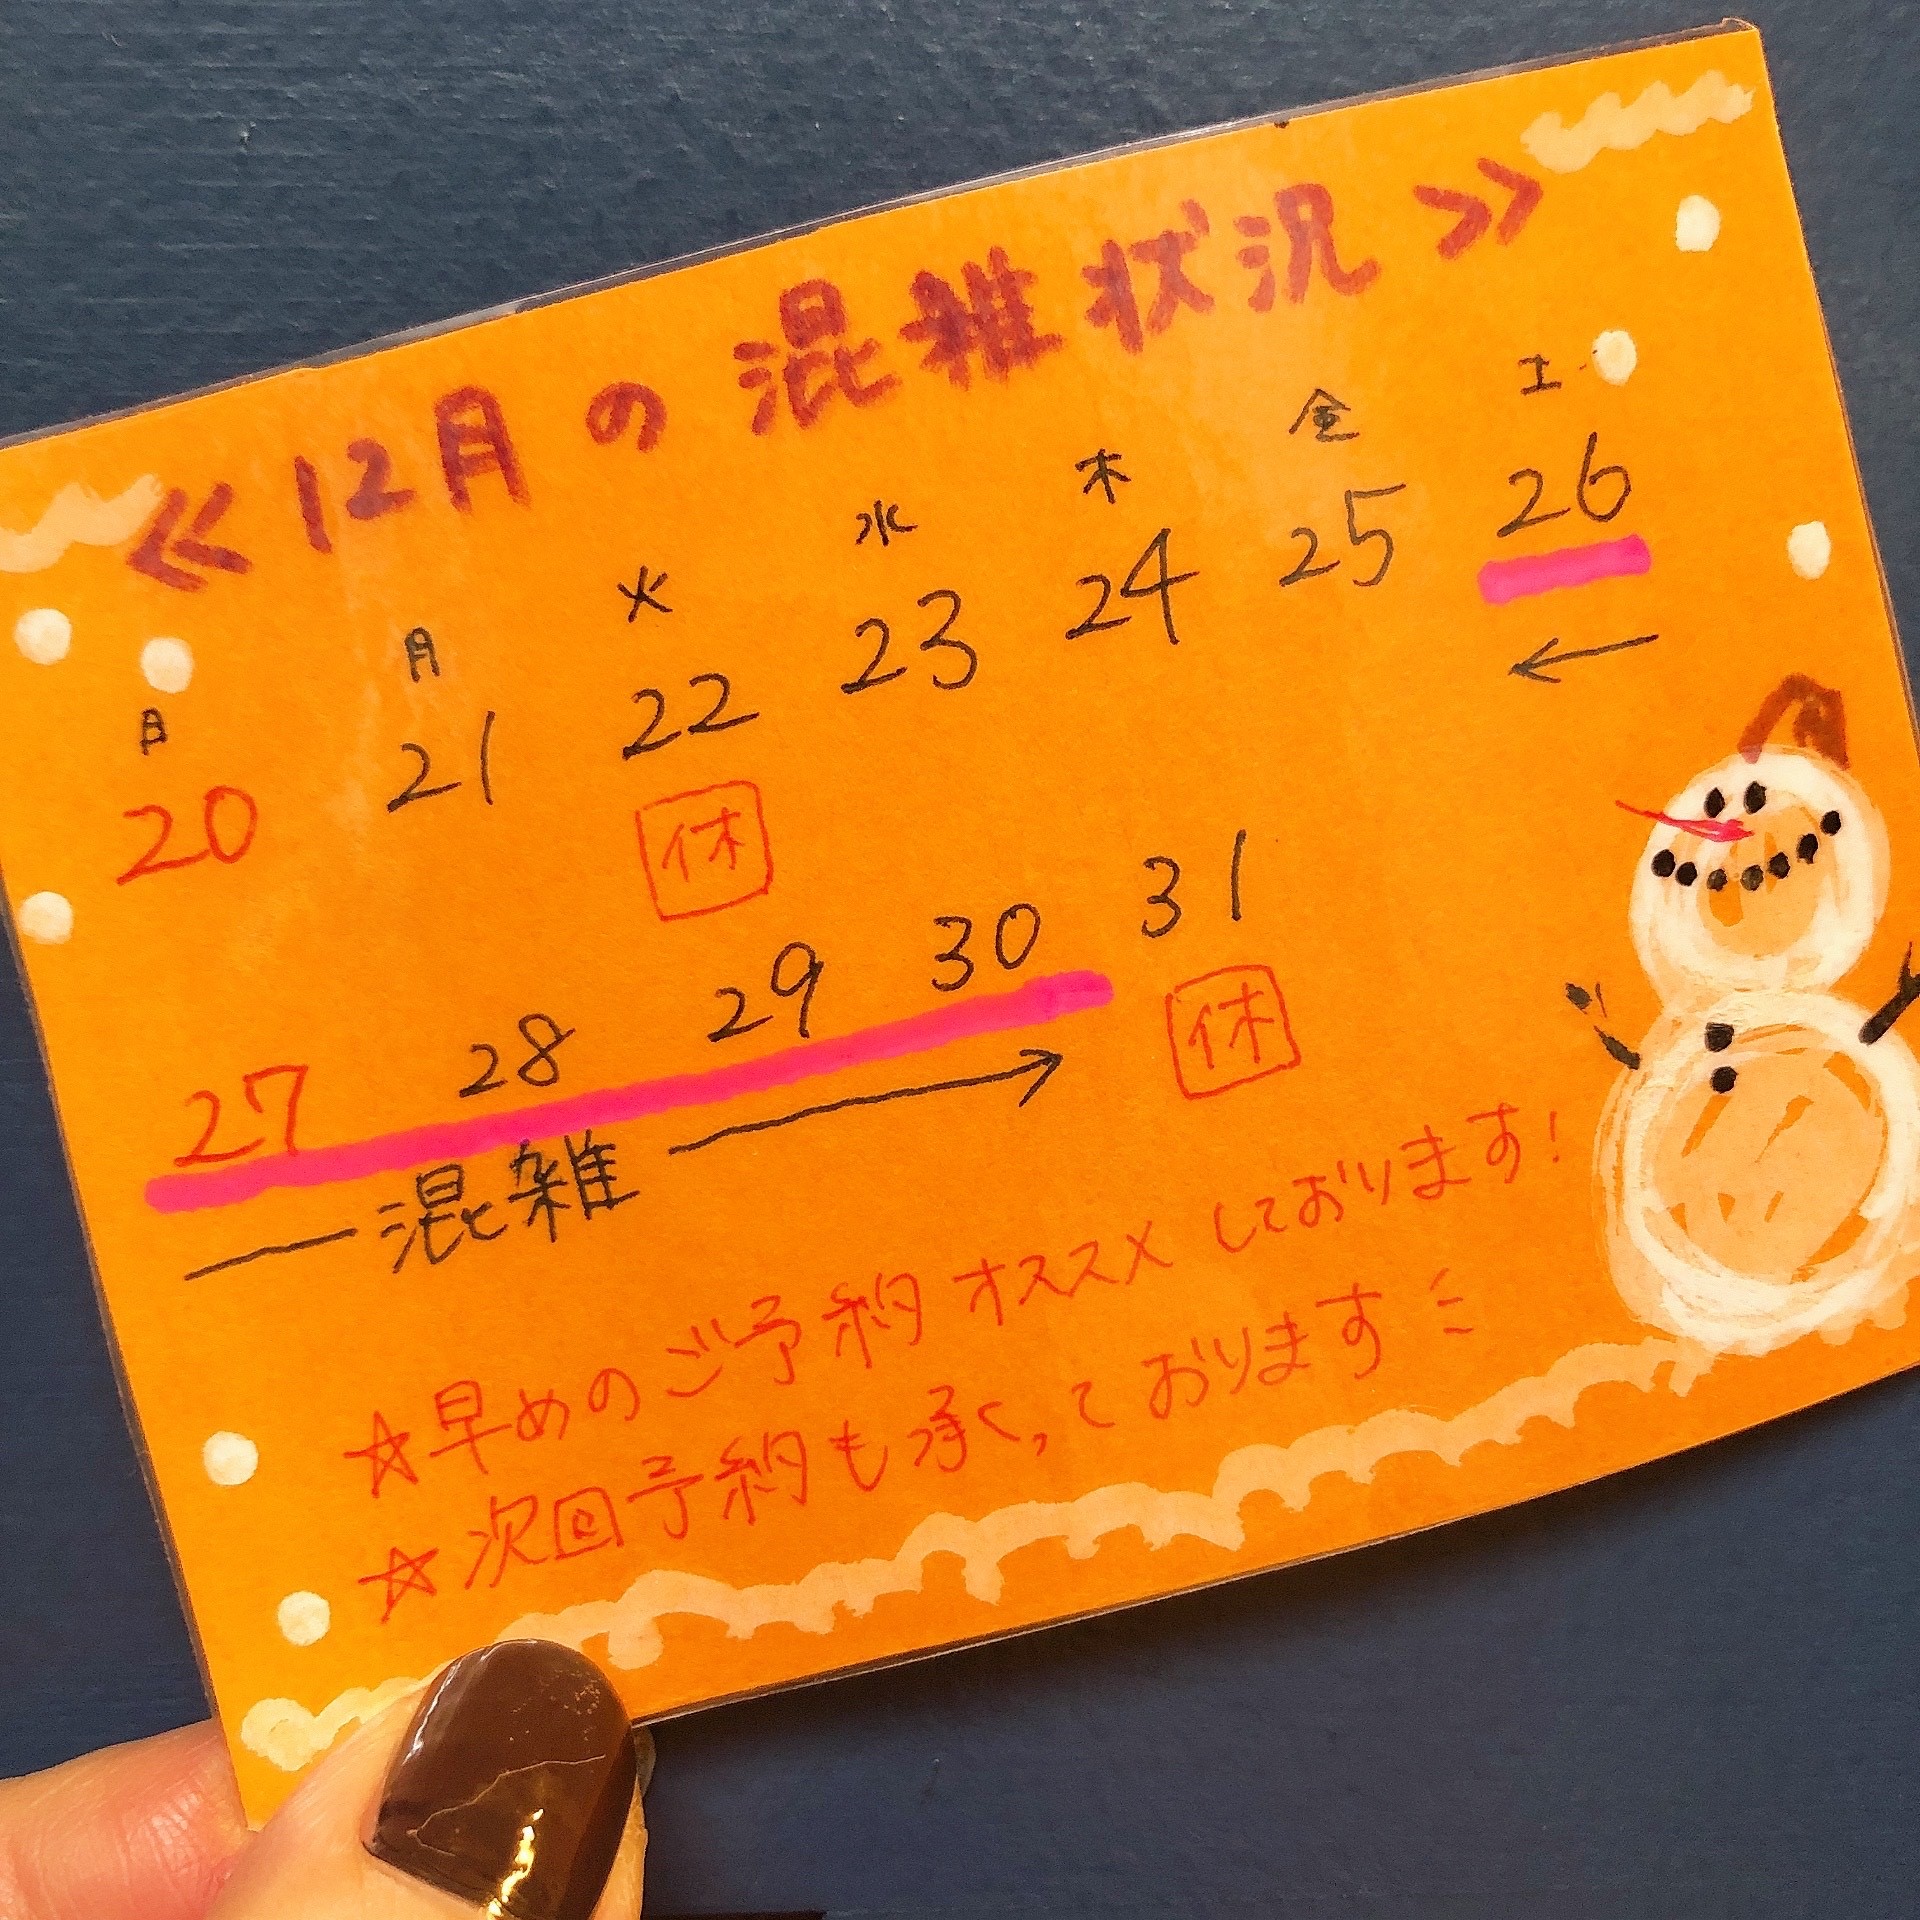 ≪12月の混雑状況≫
日 月 火 水 木 金 土
20 21 22 23 24 25 26
休
27 28 29 30 31
混雑
休
☆早めのご予約オススメしております!
☆次回予約も承っております